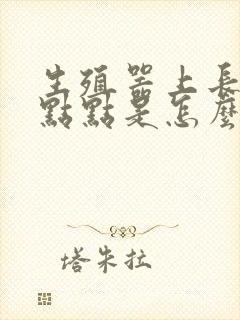 生殖器上長
點點是怎麼
塔朱拉